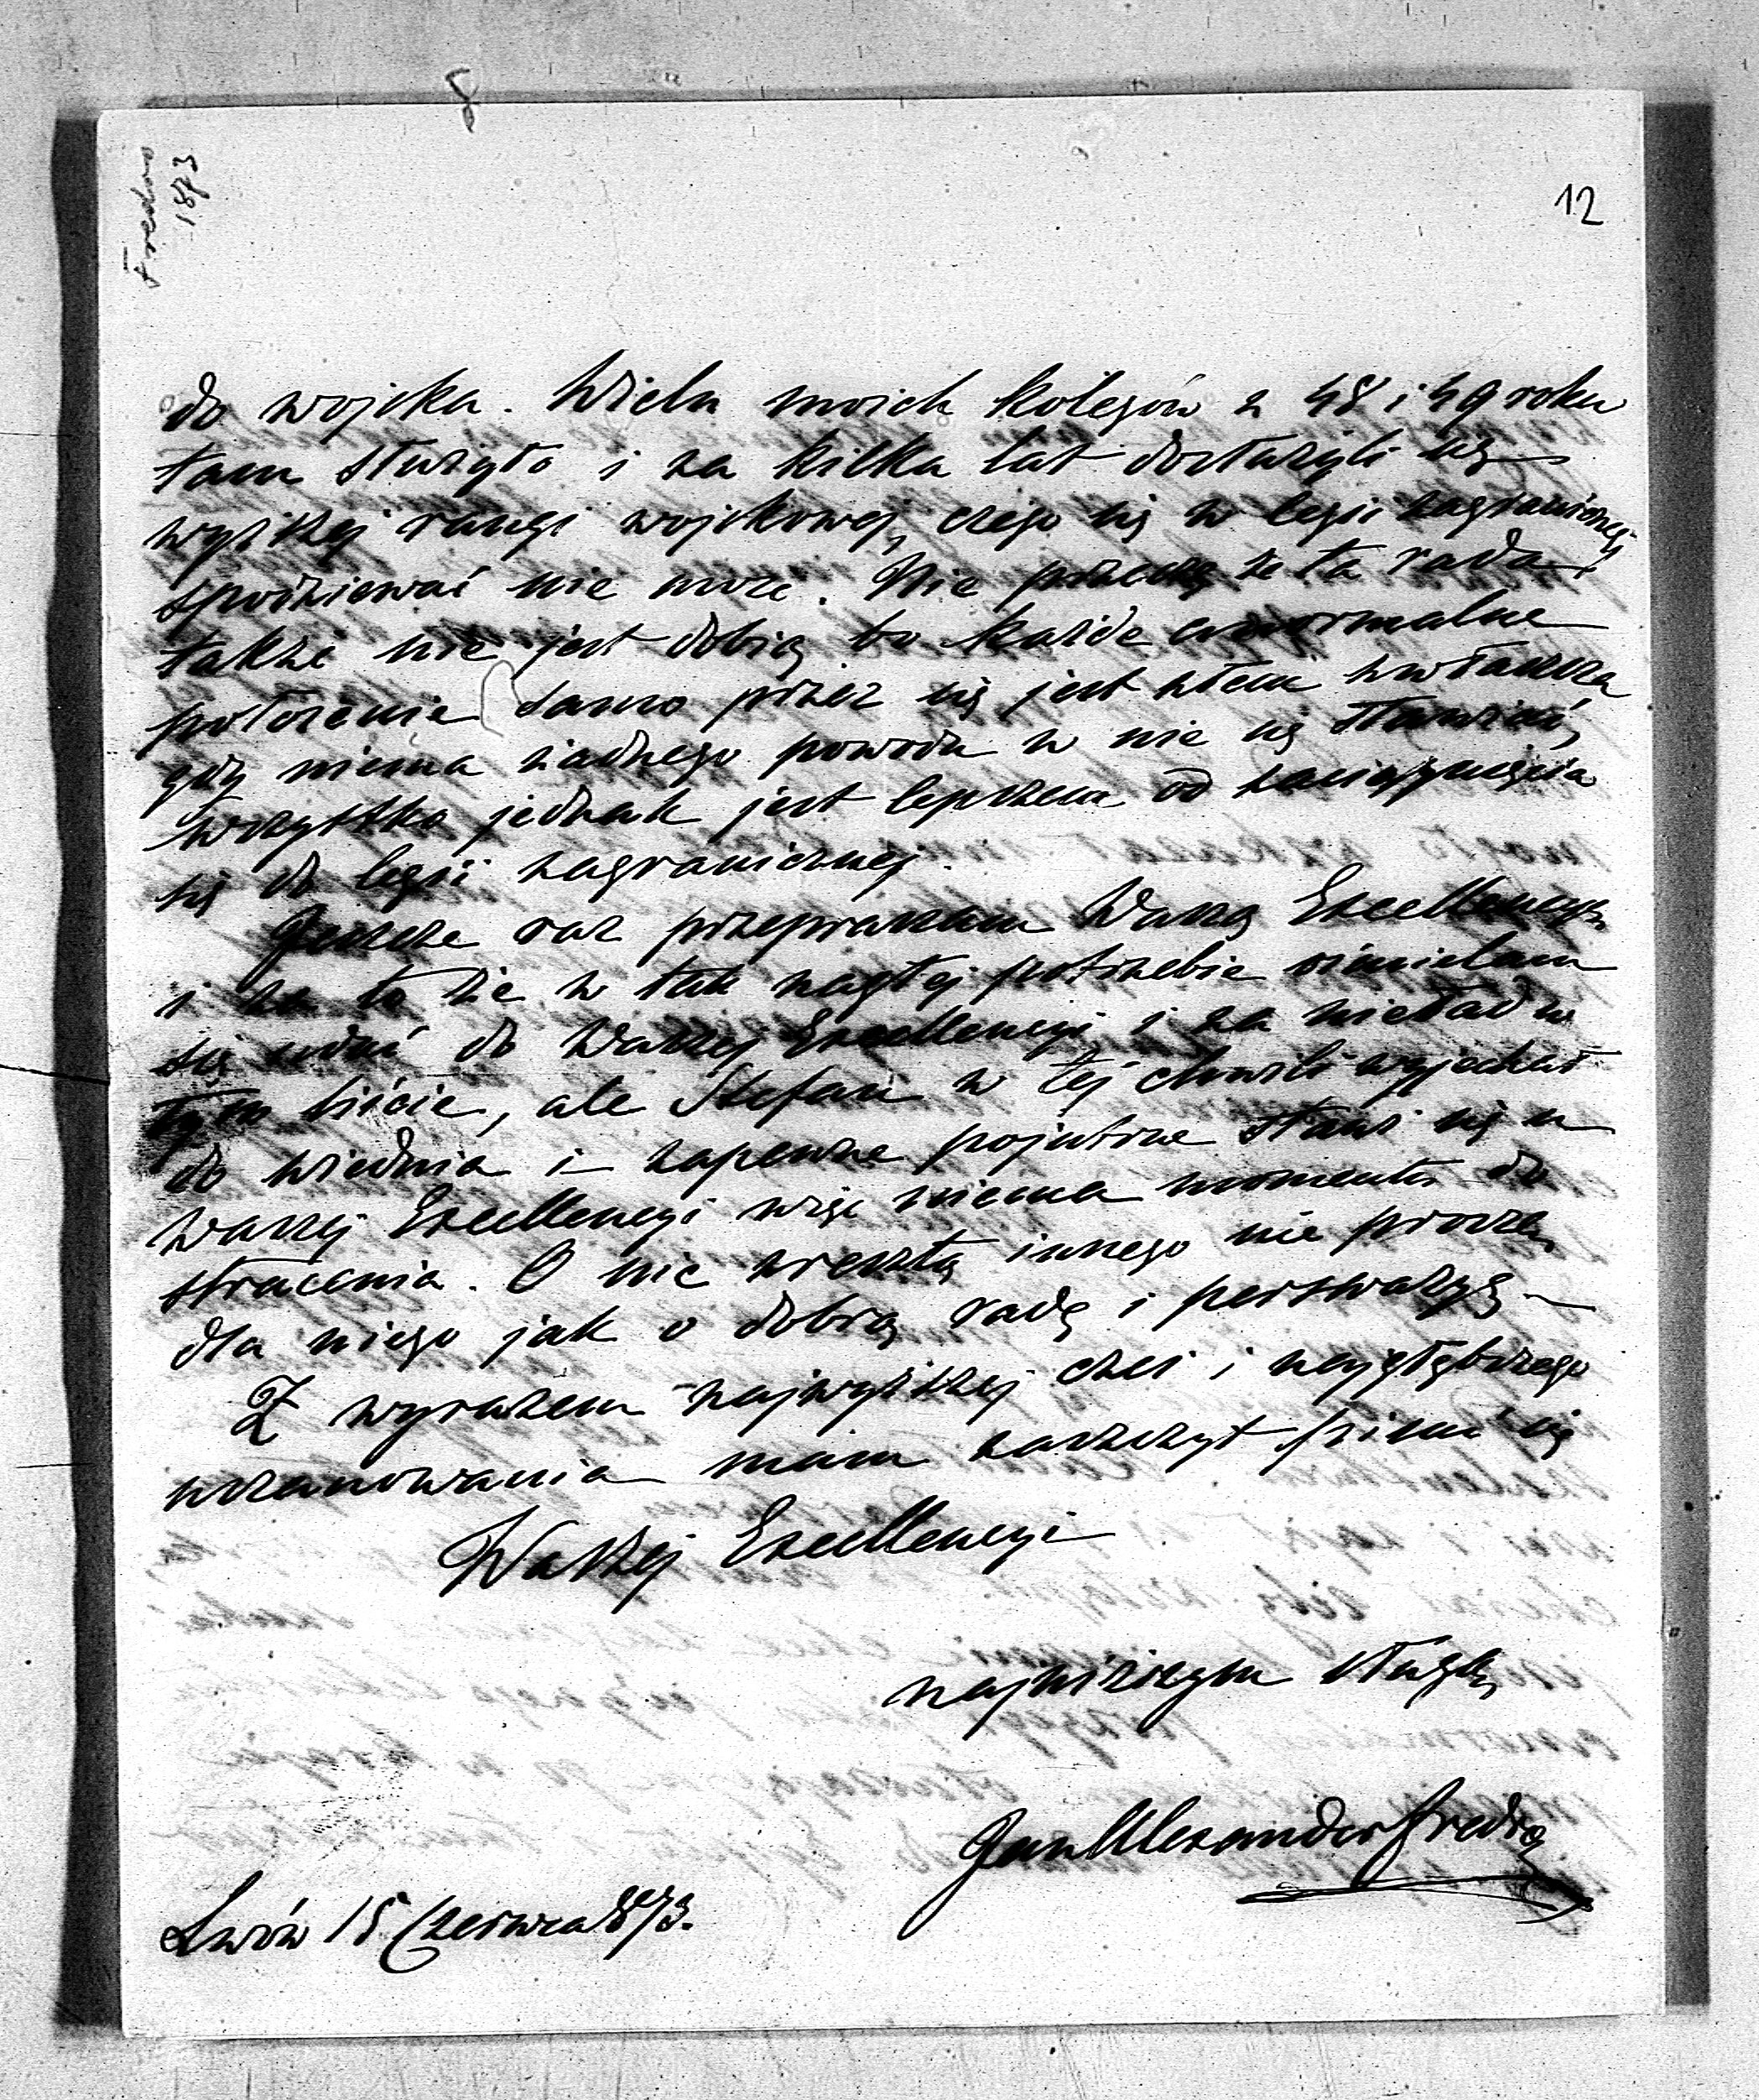 Fredro
1873
12
do wojska. Wielu moich kolegów z 48 i 49 roku
tam służyło i za kilka lat dosłużyli się
wyższej rangi wojskowej, czego się w legii zagranicznej
spodziewać nie może. Nie przeczę że ta rada
także nie jest dobrą bo każde anormalne
położenie samo przez się jest złem zwłaszcza
gdy niema żadnego powodu w nie się stawiać,
wszystko jednak jest lepszem od zaciągnięcia
się do legii zagranicznej.
Jeszcze raz przepraszam Waszą Excellencyę
i za to że w tak nagłej potrzebie śmiałem
się udać do Waszej Excellencyi i za nieład w
tym liście, ale Stefan w tej chwili wyjechał
do Wiednia i zapewne pojutrze stawi się u
Waszej Excellencyi więc niema momentu do
stracenia. O nic zresztą innego nie proszę
dla niego jak o dobrą radę i perswazyę
Z wyrazem najwyższej czci i najgłębszego
uszanowania mam zaszczyt pisać się
Waszej Excellencyi
najniższym sługą
Jan Alexander Fredro
Lwów 15 Czerwca 873.